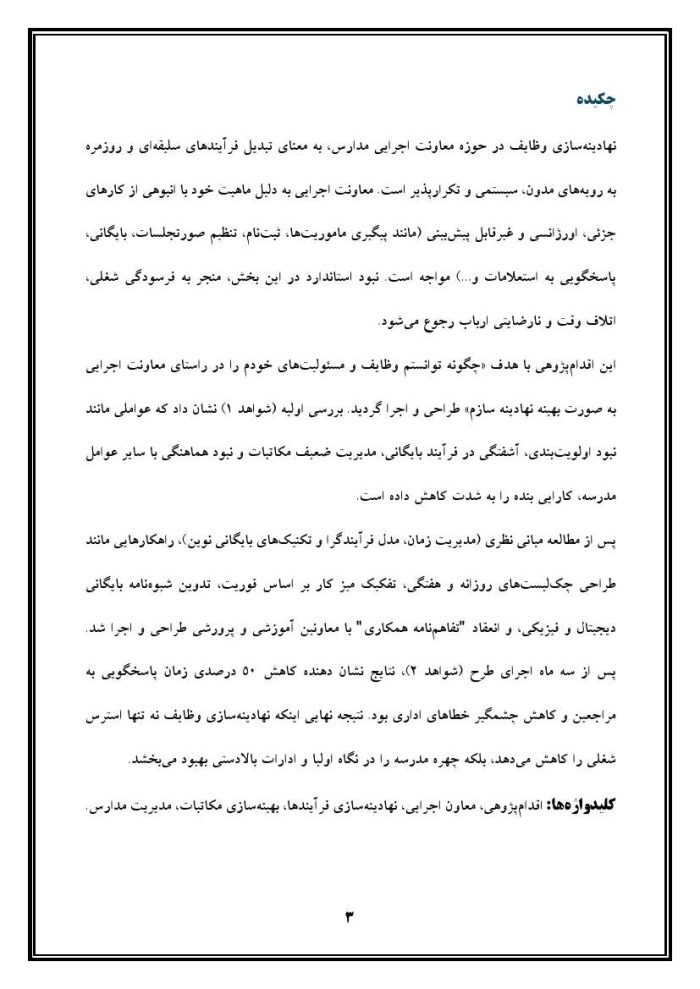 چکیده
نهادینه‌سازی وظایف در حوزه معاونت اجرایی مدارس، به معنای تبدیل فرآیندهای سلیقه‌ای و روزمره
به رویه‌های مدون، سیستمی و تکرارپذیر است. معاونت اجرایی به دلیل ماهیت خود با انبوهی از کارهای
جزئی، اورژانسی و غیرقابل پیش‌بینی (مانند پیگیری ماموریت‌ها، ثبت‌نام، تنظیم صورتجلسات، بایگانی،
پاسخگویی به استعلامات و...) مواجه است. نبود استاندارد در این بخش، منجر به فرسودگی شغلی،
اتلاف وقت و نارضایتی ارباب رجوع می‌شود.
این اقدام‌پژوهی با هدف «چگونه توانستم وظایف و مسئولیت‌های خودم را در راستای معاونت اجرایی
به صورت بهینه نهادینه سازم» طراحی و اجرا گردید. بررسی اولیه (شواهد ۱) نشان داد که عواملی مانند
نبود اولویت‌بندی، آشفتگی در فرآیند بایگانی، مدیریت ضعیف مکاتبات و نبود هماهنگی با سایر عوامل
مدرسه، کارایی بنده را به شدت کاهش داده است.
پس از مطالعه مبانی نظری (مدیریت زمان، مدل فرآیندگرا و تکنیک‌های بایگانی نوین)، راهکارهایی مانند
طراحی چک‌لیست‌های روزانه و هفتگی، تفکیک میز کار بر اساس فوریت، تدوین شیوه‌نامه بایگانی
دیجیتال و فیزیکی، و انعقاد "تفاهم‌نامه همکاری" با معاونین آموزشی و پرورشی طراحی و اجرا شد.
پس از سه ماه اجرای طرح (شواهد ۲)، نتایج نشان دهنده کاهش ۵۰ درصدی زمان پاسخگویی به
مراجعین و کاهش چشمگیر خطاهای اداری بود. نتیجه نهایی اینکه نهادینه‌سازی وظایف نه تنها استرس
شغلی را کاهش می‌دهد، بلکه چهره مدرسه را در نگاه اولیا و ادارات بالادستی بهبود می‌بخشد.
کلیدواژه‌ها: اقدام‌پژوهی، معاون اجرایی، نهادینه‌سازی فرآیندها، بهینه‌سازی مکاتبات، مدیریت مدارس.
۳